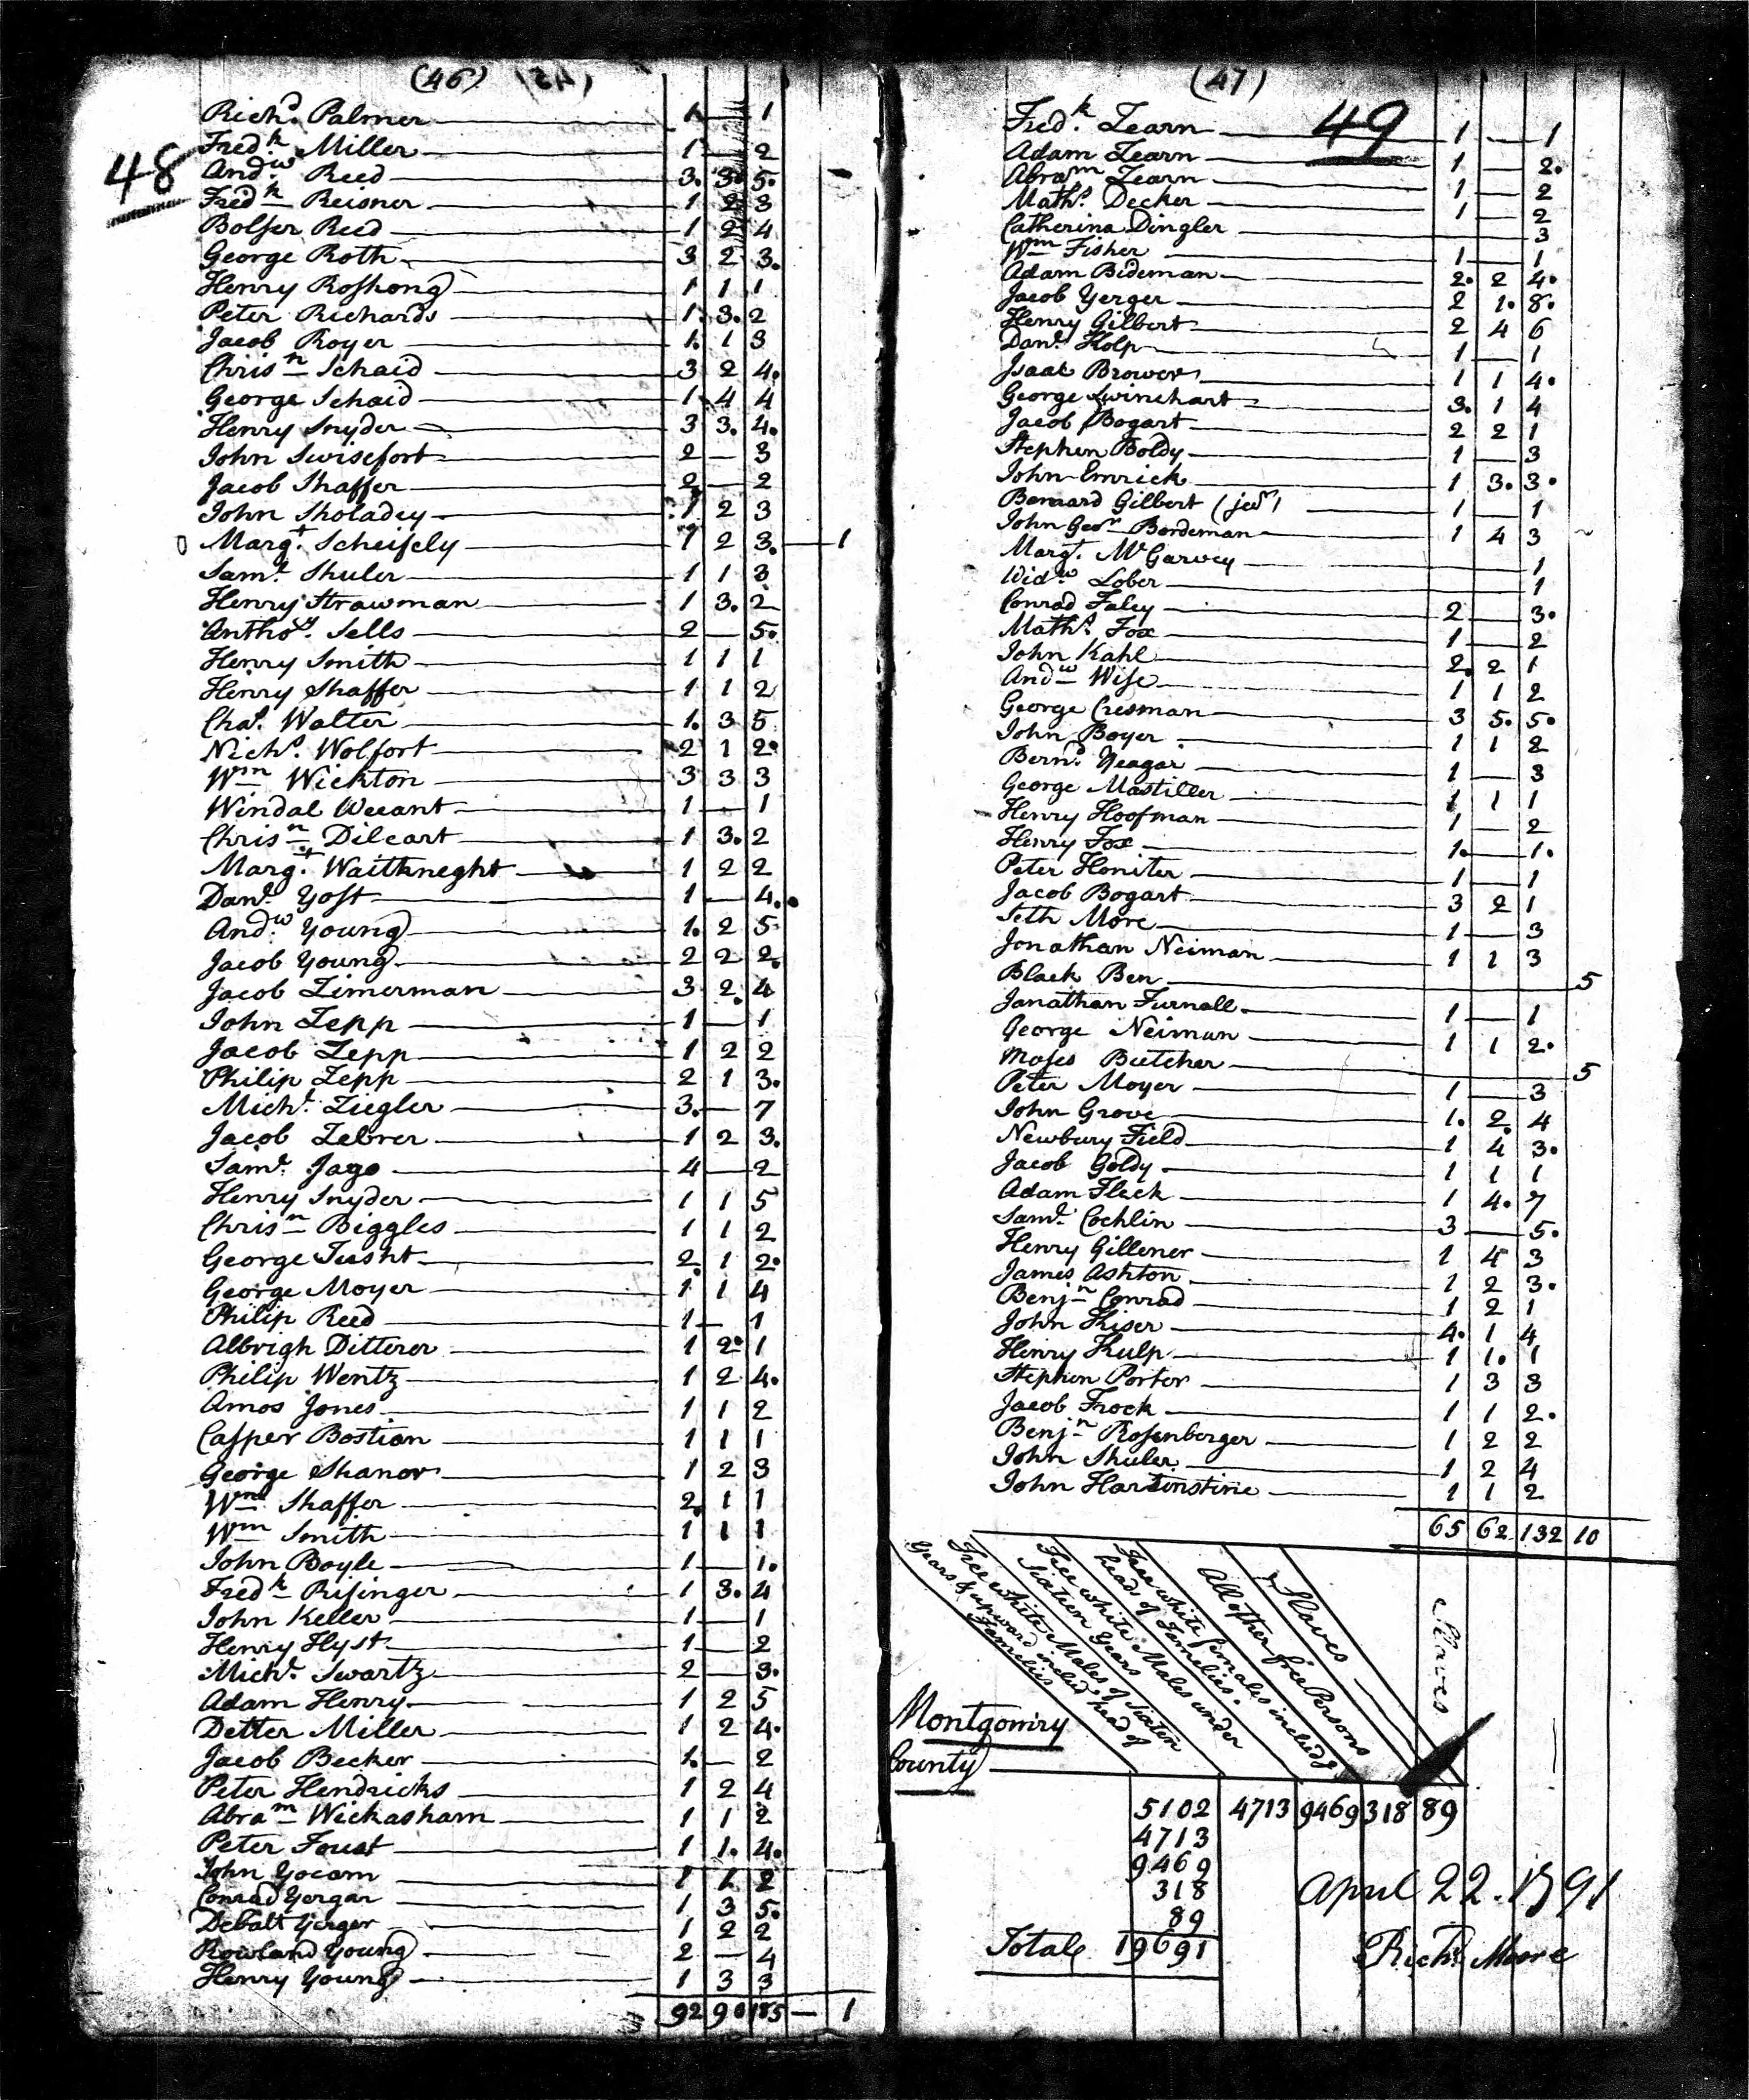 (46)
48
Rich.d Palmer 1 — 1
Fred.k Miller 1 — 2
And.w Reed 3. 3. 5.
Fred.k Reisner 1 2 3
Bolser Reed 1 2 4
George Roth 3 2 3.
Henry Roshong 1 1 1
Peter Richards 1. 3. 2
Jacob Royer 1. 1 3
Chris.n Schaid 3 2 4.
George Schaid 1 4 4
Henry Snyder 3 3. 4.
John Swisefort 2 — 3
Jacob Shaffer 2 — 2
John Sholadey 1 2 3
Marg.t Scheifely 1 2 3. — 1
Sam.l Shuler 1 1 3
Henry Strawman 1 3. 2
Antho.y Sells 2 — 5.
Henry Smith 1 1 1
Henry Shaffer 1 1 2
Cha.s Walter 1. 3 5
Nich.s Wolfort 2 1 2.
W.m Wickton 3 3 3
Windal Weeant 1 — 1
Chris.n Dileart 1 3. 2
Marg.t Waitkneght 1 2 2
Dan.l Yost 1 — 4.
And.w Young 1. 2 5
Jacob Young 2 2 2.
Jacob Zimerman 3 2. 4
John Zepp 1 — 1
Jacob Zepp 1 2 2
Philip Zepp 2 1 3.
Mich.l Ziegler 3. — 7
Jacob Zebrer 1 2 3.
Sam.l Jago 4 — 2
Henry Snyder 1 1 5
Chris.n Biggles 1 1 2
George Tusht 2. 1 2.
George Moyer 1 1 4
Philip Reed 1 — 1
Albrigh Ditterer 1 2. 1
Philip Wentz 1 2 4.
Amos Jones 1 1 2
Casper Bostian 1 1 1
George Shanor 1 2 3
W.m Shaffer 2. 1 1
W.m Smith 1 1 1
John Boyle 1 — 1.
Fred.k Risinger 1 3. 4
John Keller 1 — 1
Henry Hyst 1 — 2
Mich.l Swartz 2 — 3.
Adam Henry 1 2 5
Detter Miller 1 2 4.
Jacob Becker 1. — 2
Peter Hendricks 1 2 4
Abra.m Wickasham 1 1 2
Peter Foust 1 1. 4.
John Yocom 1 1 2
Conrad Yergar 1 3 5.
Debalt Yerger 1 2 2
Rowland Young 2 — 4
Henry Young 1 3 3
92 90 185 — 1
(47)
49
Fred.k Zearn 1 — 1
Adam Zearn 1 — 2.
Abra.m Zearn 1 — 2
Math.s Decker 1 — 2
Catherina Dingler 3
W.m Fisher 1 — 1
Adam Bideman 2. 2 4.
Jacob Yerger 2 1. 8.
Henry Gilbert 2 4 6
Dan.l Kolp 1 — 1
Isaac Brower 1 1 4.
George Swinehart 3. 1 4
Jacob Bogart 2 2 1
Stephen Boldy 1 — 3
John Emrick 1 3. 3.
Bernard Gilbert (jun.r) 1 — 1
John Geo.e Bordeman 1 4 3
Marg.t McGarvey 1
Wid.w Lober 1
Conrad Faley 2 — 3.
Math.s Fox 1 — 2
John Kahl 2. 2 1
And.w Wise 1 1 2
George Cresman 3 5. 5.
John Boyer 1 1 2
Bern.d Yeagar 1 — 3
George Mastiller 1 1 1
Henry Hoofman 1 — 2
Henry Fox 1. — 1.
Peter Honiter 1 — 1
Jacob Bogart 3 2 1
Seth More 1 — 3
Jonathan Neiman 1 1 3
Black Ben 5
Jonathan Furnall 1 — 1
George Neiman 1 1 2.
Moses Butcher 5
Peter Moyer 1 — 3
John Grove 1. 2. 4
Newbury Field 1 4 3.
Jacob Goldy 1 1 1
Adam Fleck 1 4. 7
Sam.l Cochlin 3 — 5.
Henry Gillener 1 4 3
James Ashton 1 2 3.
Benj.n Conrad 1 2 1
John Kiser 4. 1 4
Henry Kulp 1 1. 1
Stephen Porter 1 3 3
Jacob Frock 1 1 2.
Benj.n Rosenberger 1 2 2
John Shuler 1 2 4
John Hartenstine 1 1 2
65 62 132 10
Free white Males of Sixteen
Years & upward includ.g head of
Families
Free white Males under
Sixteen Years
Free white females includ.g
heads of Families.
All other free Persons
Slaves
Slaves
Montgomery
County
5102 4713 9469 318 89
4713
9469
318
89
Total 19691
April 22. 1791
Rich.d Moore